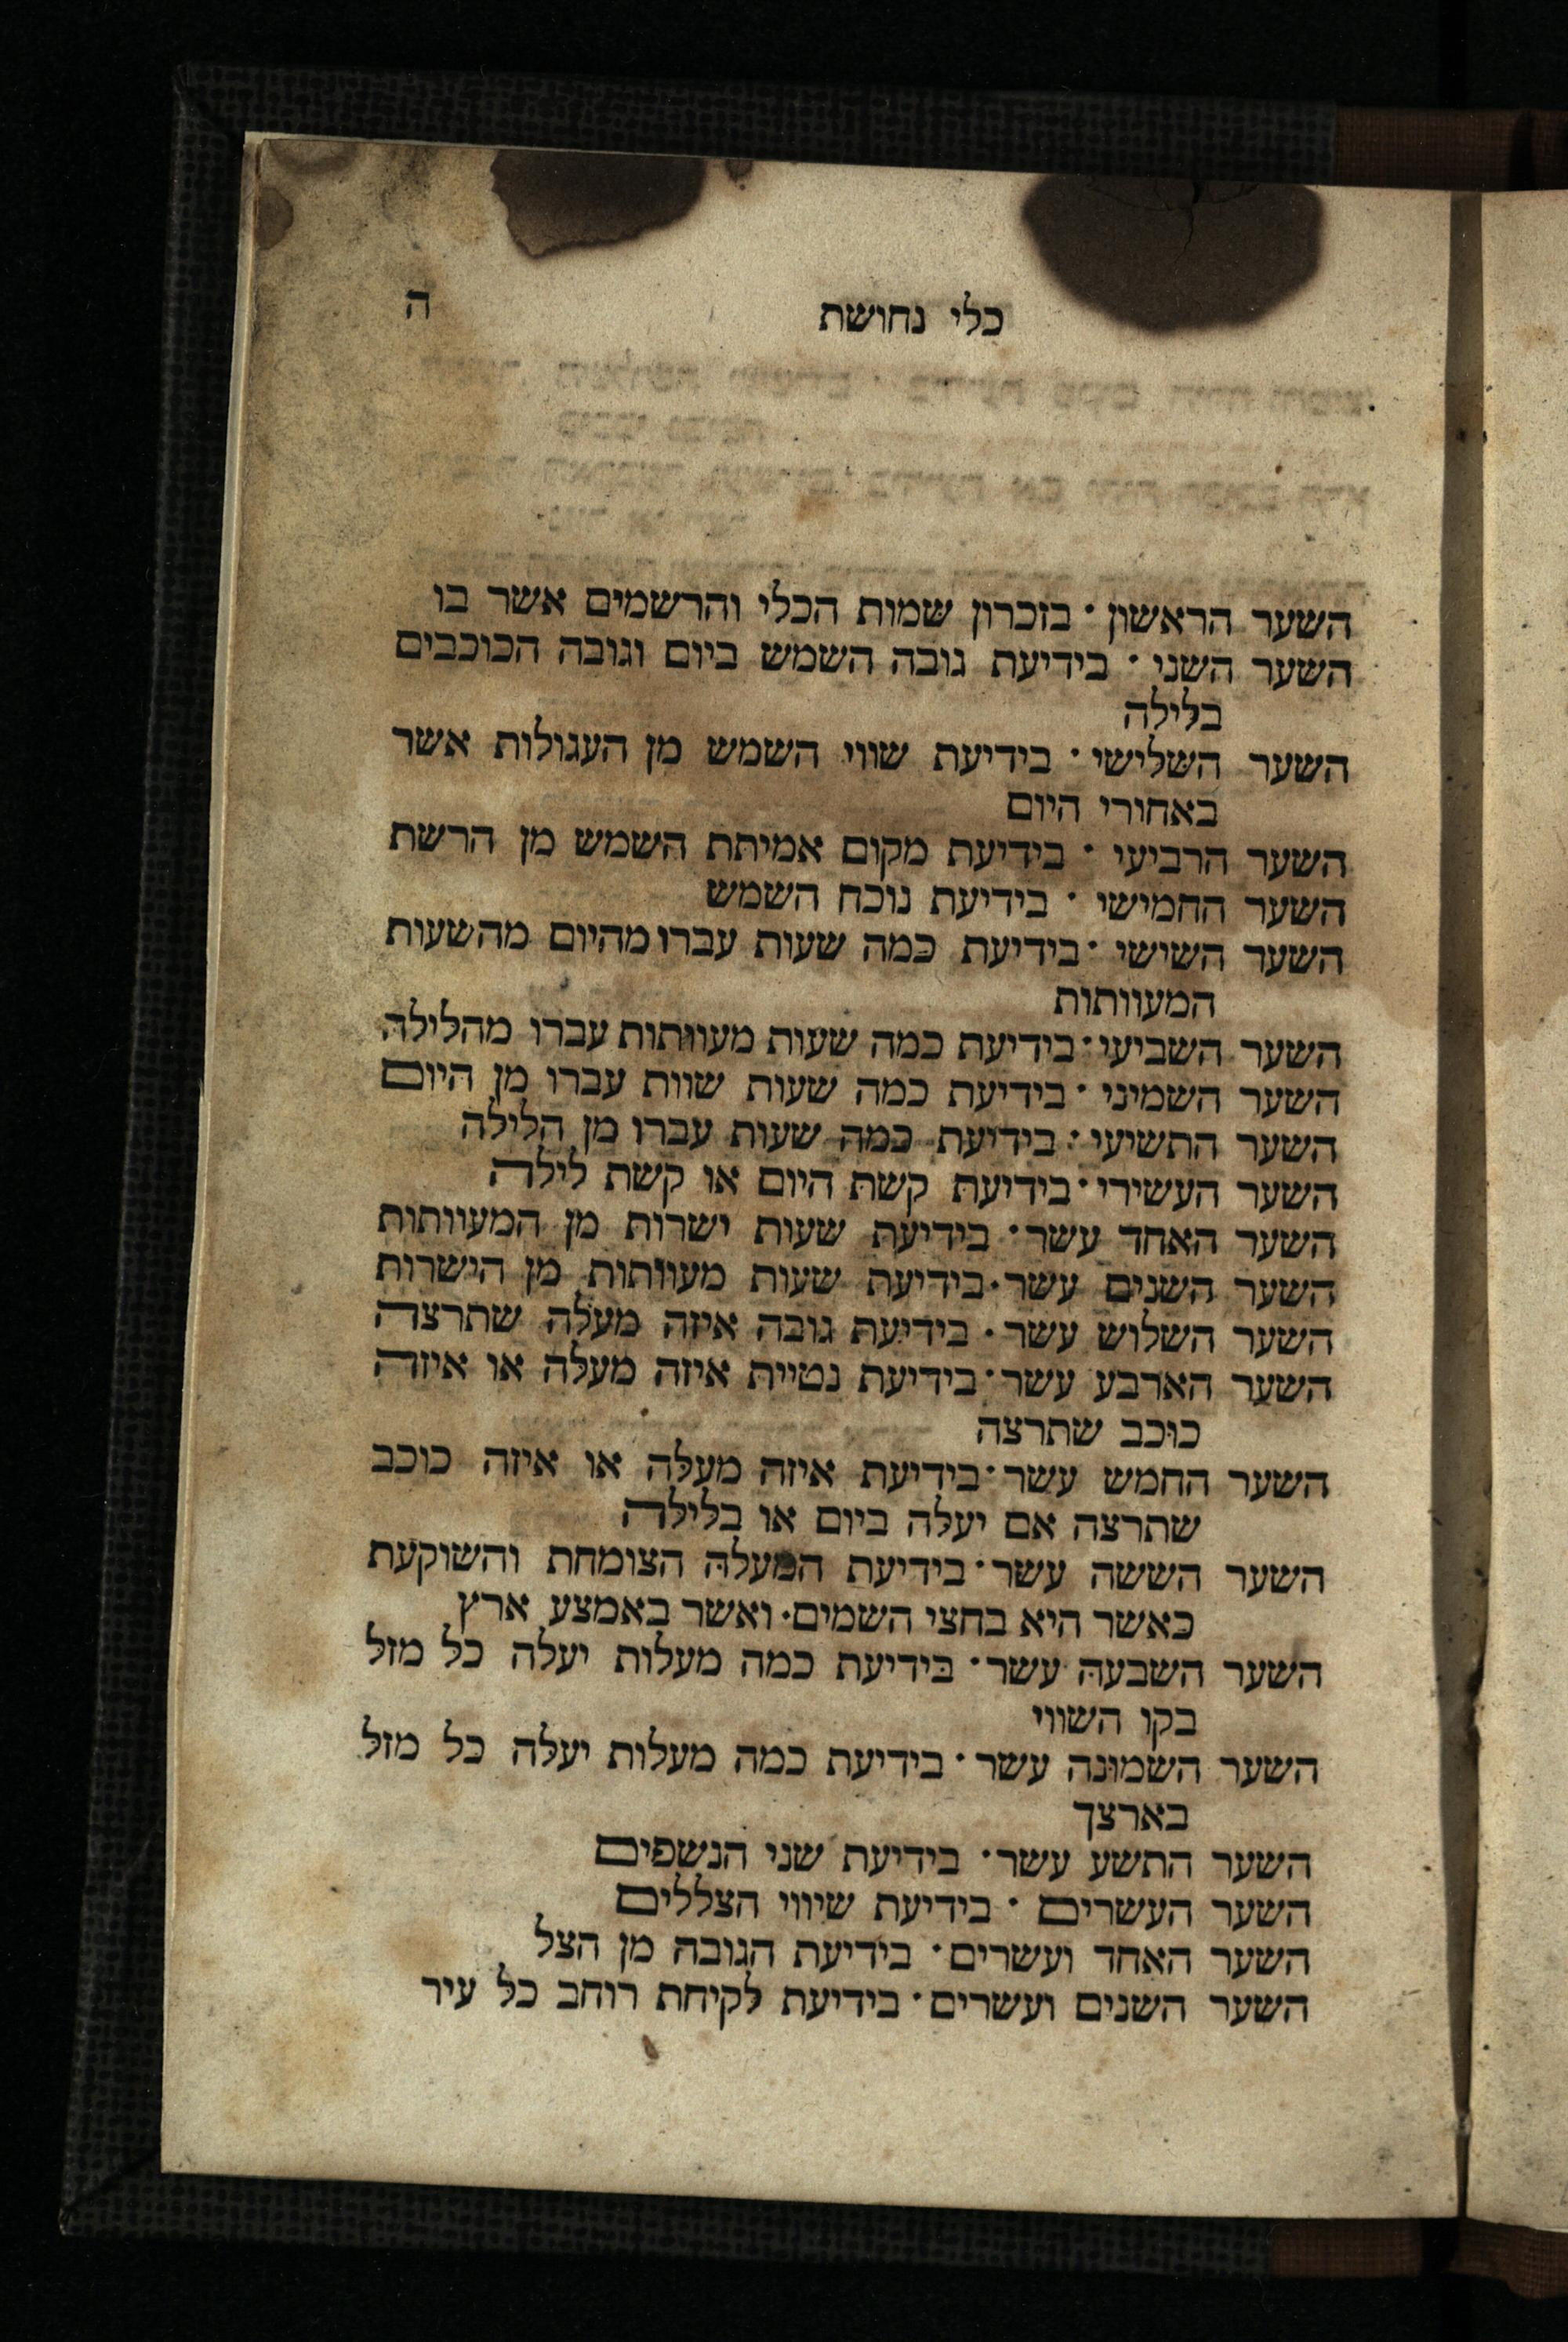 כלי נחושת
ה
השער הראשון · בזכרון שמות הכלי והרשמים אשר בו
השער השני · בידיעת גובה השמש ביום וגובה הכוכבים
בלילה
השער השלישי · בידיעת שווי השמש מן העגולות אשר
באחורי היום
השער הרביעי · בידיעת מקום אמיתת השמש מן הרשת
השער החמישי · בידיעת נוכח השמש
השער השישי · בידיעת כמה שעות עברו מהיום מהשעות
המעוותות
השער השביעי · בידיעת כמה שעות מעוותות עברו מהלילה
השער השמיני · בידיעת כמה שעות שוות עברו מן היום
השער התשיעי · בידיעת כמה שעות עברו מן הלילה
השער העשירי · בידיעת קשת היום או קשת לילה
השער האחד עשר · בידיעת שעות ישרות מן המעוותות
השער השנים עשר · בידיעת שעות מעוותות מן הישרות
השער השלוש עשר · בידיעת גובה איזה מעלה שתרצה
השער הארבע עשר · בידיעת נטיית איזה מעלה או איזה
כוכב שתרצה
השער החמש עשר · בידיעת איזה מעלה או איזה כוכב
שתרצה אם יעלה ביום או בלילה
השער הששה עשר · בידיעת המעלה הצומחת והשוקעת
כאשר היא בחצי השמים · ואשר באמצע ארץ
השער השבעה עשר · בידיעת כמה מעלות יעלה כל מזל
בקו השווי
השער השמונה עשר · בידיעת כמה מעלות יעלה כל מזל
בארצך
השער התשע עשר · בידיעת שני הנשפים
השער העשרים · בידיעת שיווי הצללים
השער האחד ועשרים · בידיעת הגובה מן הצל
השער השנים ועשרים · בידיעת לקיחת רוחב כל עיר